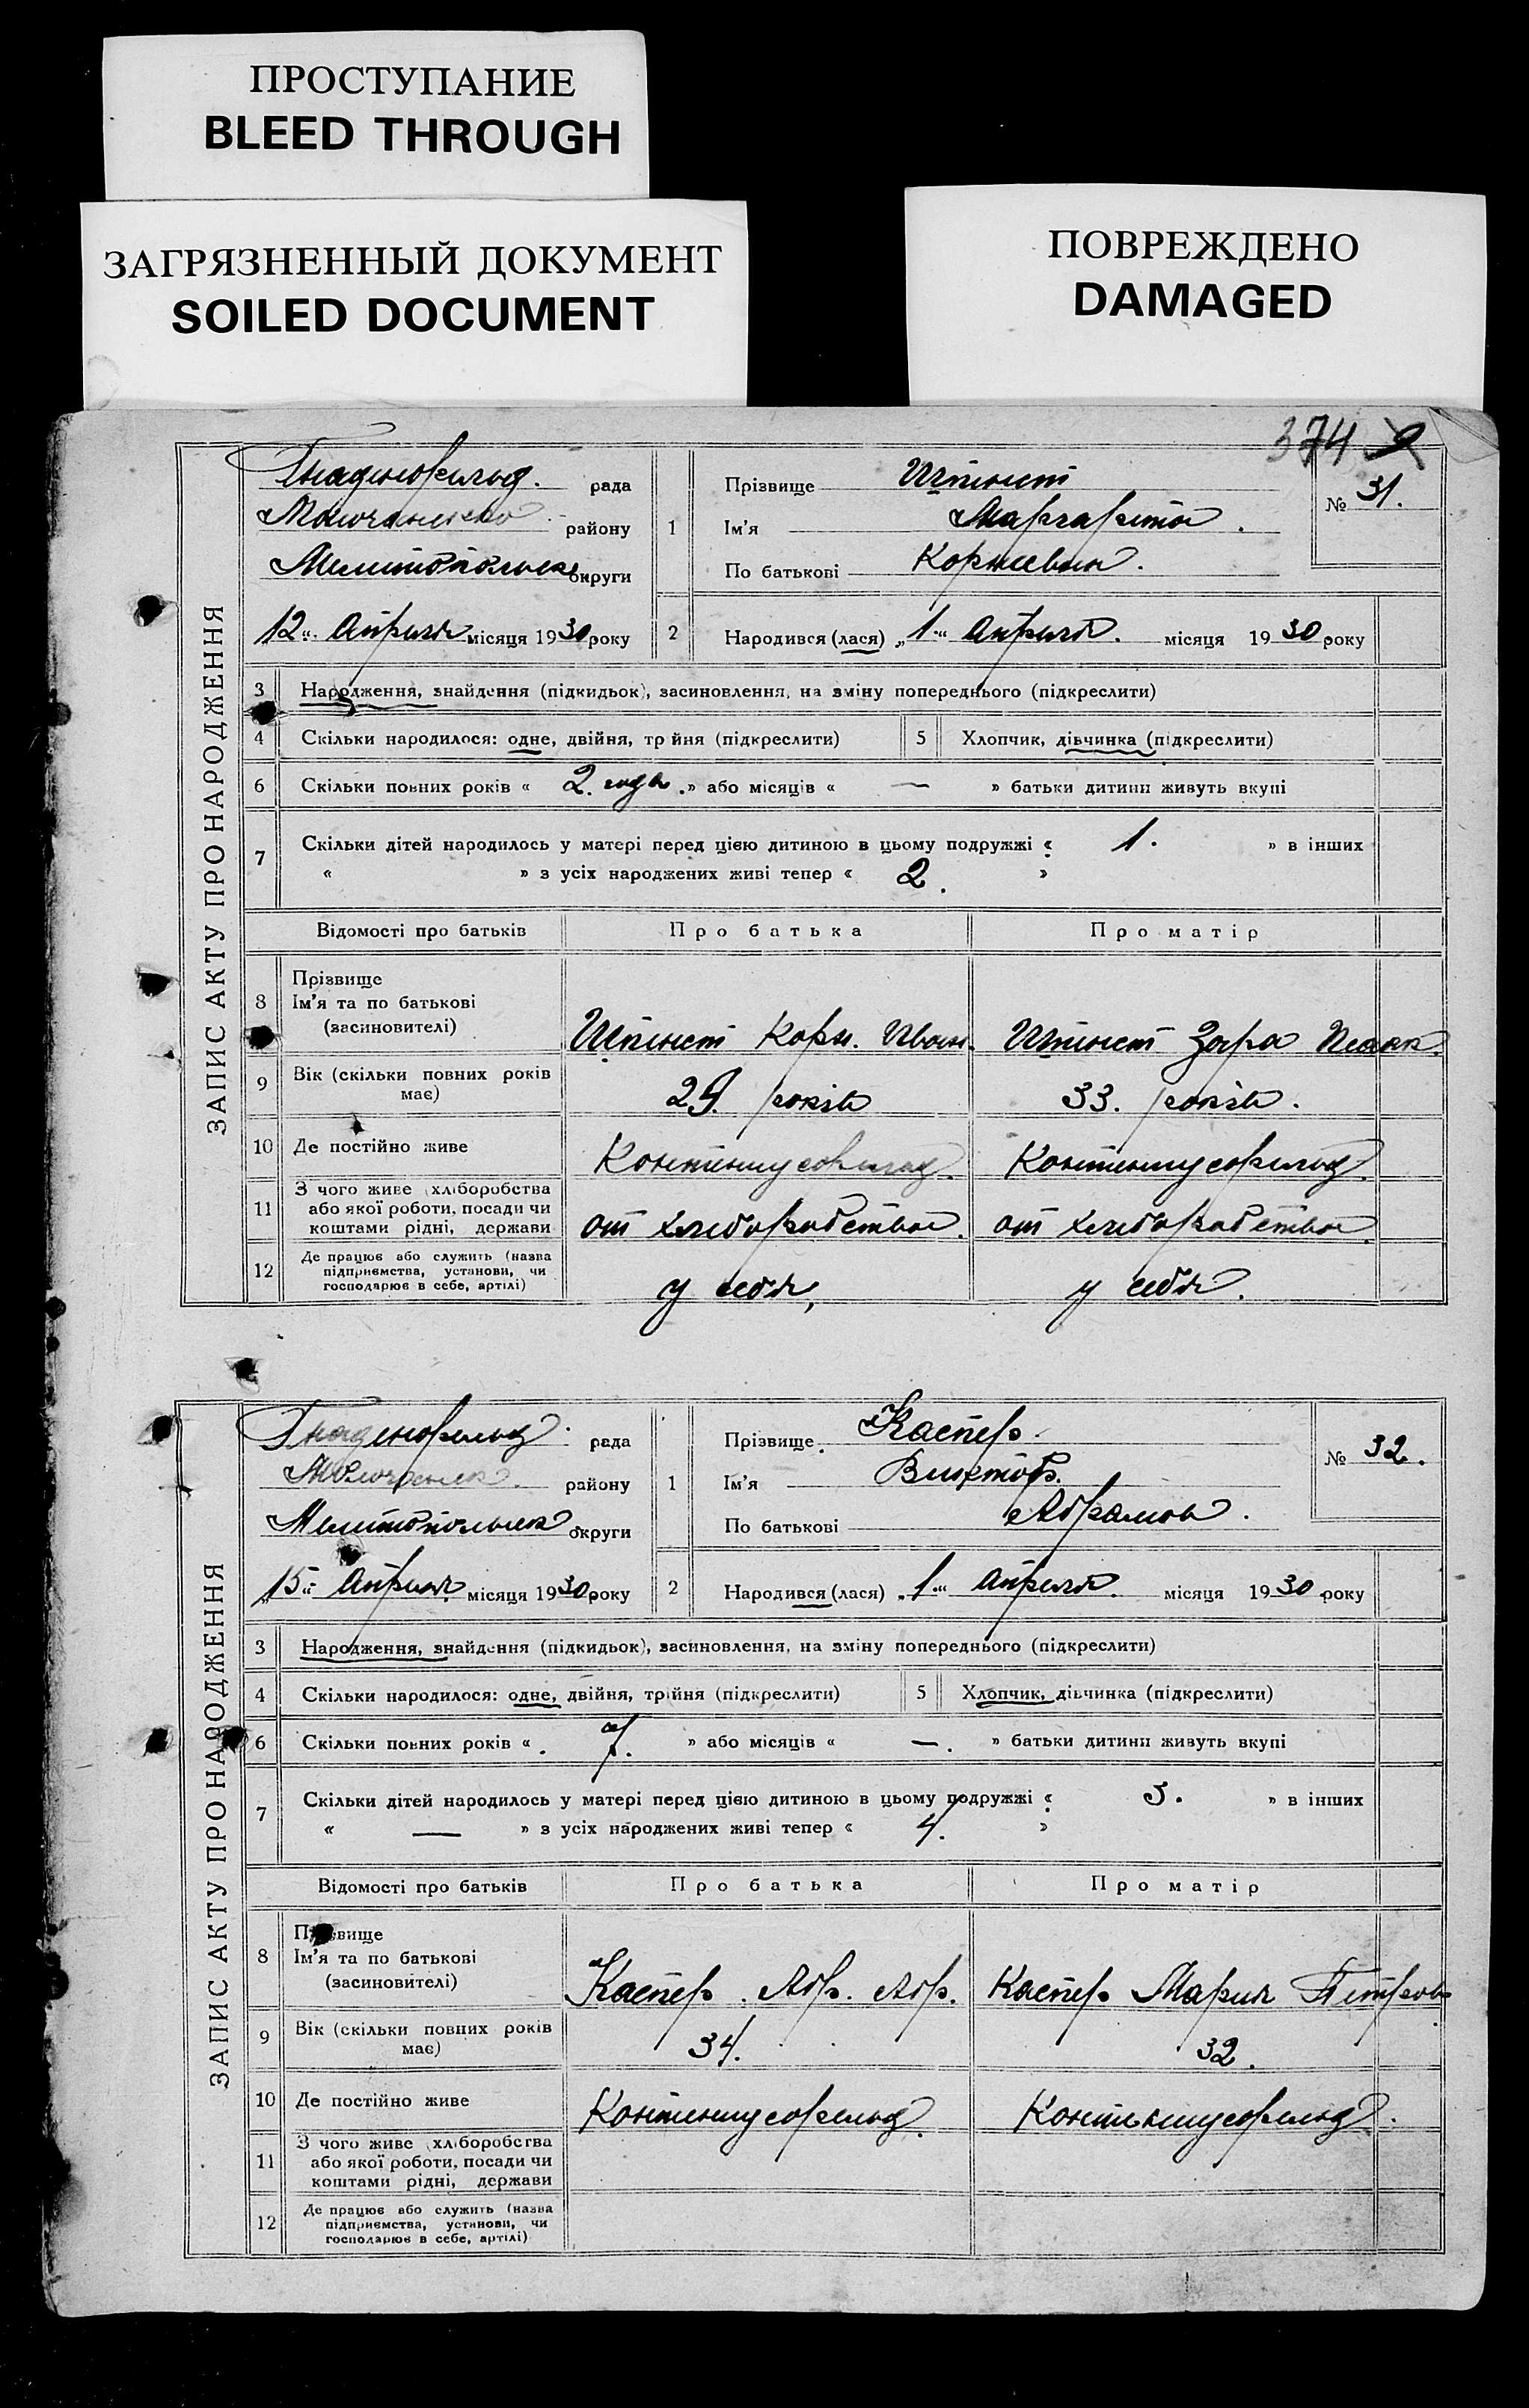 ПРОСТУПАНИЕ
BLEED THROUGH
ЗАГРЯЗНЕННЫЙ ДОКУМЕНТ
SOILED DOCUMENT
ПОВРЕЖДЕНО
DAMAGED
374
ЗАПИС АКТУ ПРО НАРОДЖЕННЯ
Гнаденфельд. рада
району
Мелитопольск округи
12 " Апреля місяця 1930 року
1 Прізвище
Ім'я Маргарита .
По батькові Корнеевна.
№ 31.
2 Народився (лася) „1" Апреля. місяця 1930 року
3 Народження, знайдення (підкидьок), засиновлення, на зміну попереднього (підкреслити)
4 Скільки народилося: одне, двійня, трійня (підкреслити) 5 Хлопчик, дівчинка (підкреслити)
6 Скільки повних років « 2. года .» або місяців « — » батьки дитини живуть вкупі
7 Скільки дітей народилось у матері перед цією дитиною в цьому подружжі « 1. » в інших
« » з усіх народжених живі тепер « 2. »
Відомості про батьків Про батька Про матір
8 Прізвище
Ім'я та по батькові
(засиновителі)
Корн. Иван. Зара Исаак.
9 Вік (скільки повних років
має)
29. років 33. років.
10 Де постійно живе Контениусфельд. Контениусфельд.
11 З чого живе (хліборобства
або якої роботи, посади чи
коштами рідні, держави
от хлеборобства. от хлеборобства.
12 Де працює або служить (назва
підприємства, установи, чи
господарює в себе, артілі)
у себя, у себя.
ЗАПИС АКТУ ПРО НАРОДЖЕННЯ
Гнаденфельд. рада
району
Мелитопольск округи
„15" Апреля місяця 1930 року
1 Прізвище Каспер.
Ім'я Виктор.
По батькові Абрамов.
№ 32.
2 Народився (лася) „1" Апреля. місяця 1930 року
3 Народження, знайдення (підкидьок), засиновлення, на зміну попереднього (підкреслити)
4 Скільки народилося: одне, двійня, трійня (підкреслити) 5 Хлопчик, дівчинка (підкреслити)
6 Скільки повних років « 7. » або місяців « —. » батьки дитини живуть вкупі
7 Скільки дітей народилось у матері перед цією дитиною в цьому подружжі « 3. » в інших
« — » з усіх народжених живі тепер « 4. »
Відомості про батьків Про батька Про матір
8 Прізвище
Ім'я та по батькові
(засиновителі)
Каспер. Абр. Абр. Каспер Мария Петров
9 Вік (скільки повних років
має)
34. 32.
10 Де постійно живе Контениусфельд. Контениусфельд.
11 З чого живе (хліборобства
або якої роботи, посади чи
коштами рідні, держави
12 Де працює або служить (назва
підприємства, установи, чи
господарює в себе, артілі)